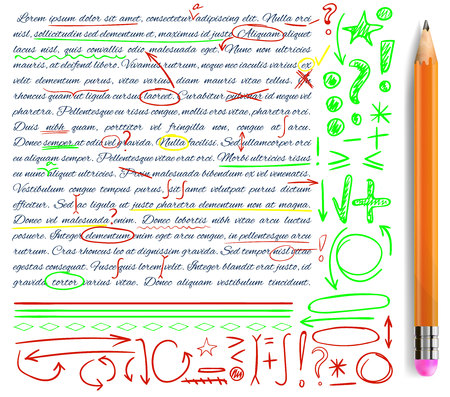 Lorem ipsum dolor sit amet, consectetur adipiscing elit. Nulla orci
nisl, sollicitudin sed elementum et, maximus id justo. Aliquam aliquet
lacus nisl, quis convallis odio malesuada eget. Nunc non ultricies
mauris, at eleifend libero. Vivamus rutrum, neque nec iaculis varius, ex
velit elementum purus, vitae varius diam mauris vitae tellus.
rhoncus quam ut ligula cursus laoreet. Curabitur pulvinar id neque vel
pharetra. Pellentesque eu risus congue, mollis eros vitae, pharetra orci.
Duis nibh quam, porttitor vel fringilla non, congue at arcu.
Donec semper at odio vel gravida. Nulla facilisi. Sed ullamcorper orci
eu aliquam semper. Pellentesque vitae erat orci. Morbi ultricies risus
eu nunc aliquet ultricies. Proin malesuada bibendum ex vel venenatis.
Vestibulum congue tempus purus, sit amet volutpat purus dictum
efficitur. Sed ac ligula ut justo pharetra elementum non at magna.
Donec vel malesuada enim. Donec lobortis nibh vitae arcu luctus
posuere. Integer elementum enim eget arcu congue, in pellentesque arcu
rutrum. Cras rhoncus leo at dignissim gravida. Sed tempor nisl vitae
egestas consequat. Fusce quis lorem velit. Integer blandit erat justo, id
gravida tortor varius vitae. Donec aliquam vestibulum tincidunt.